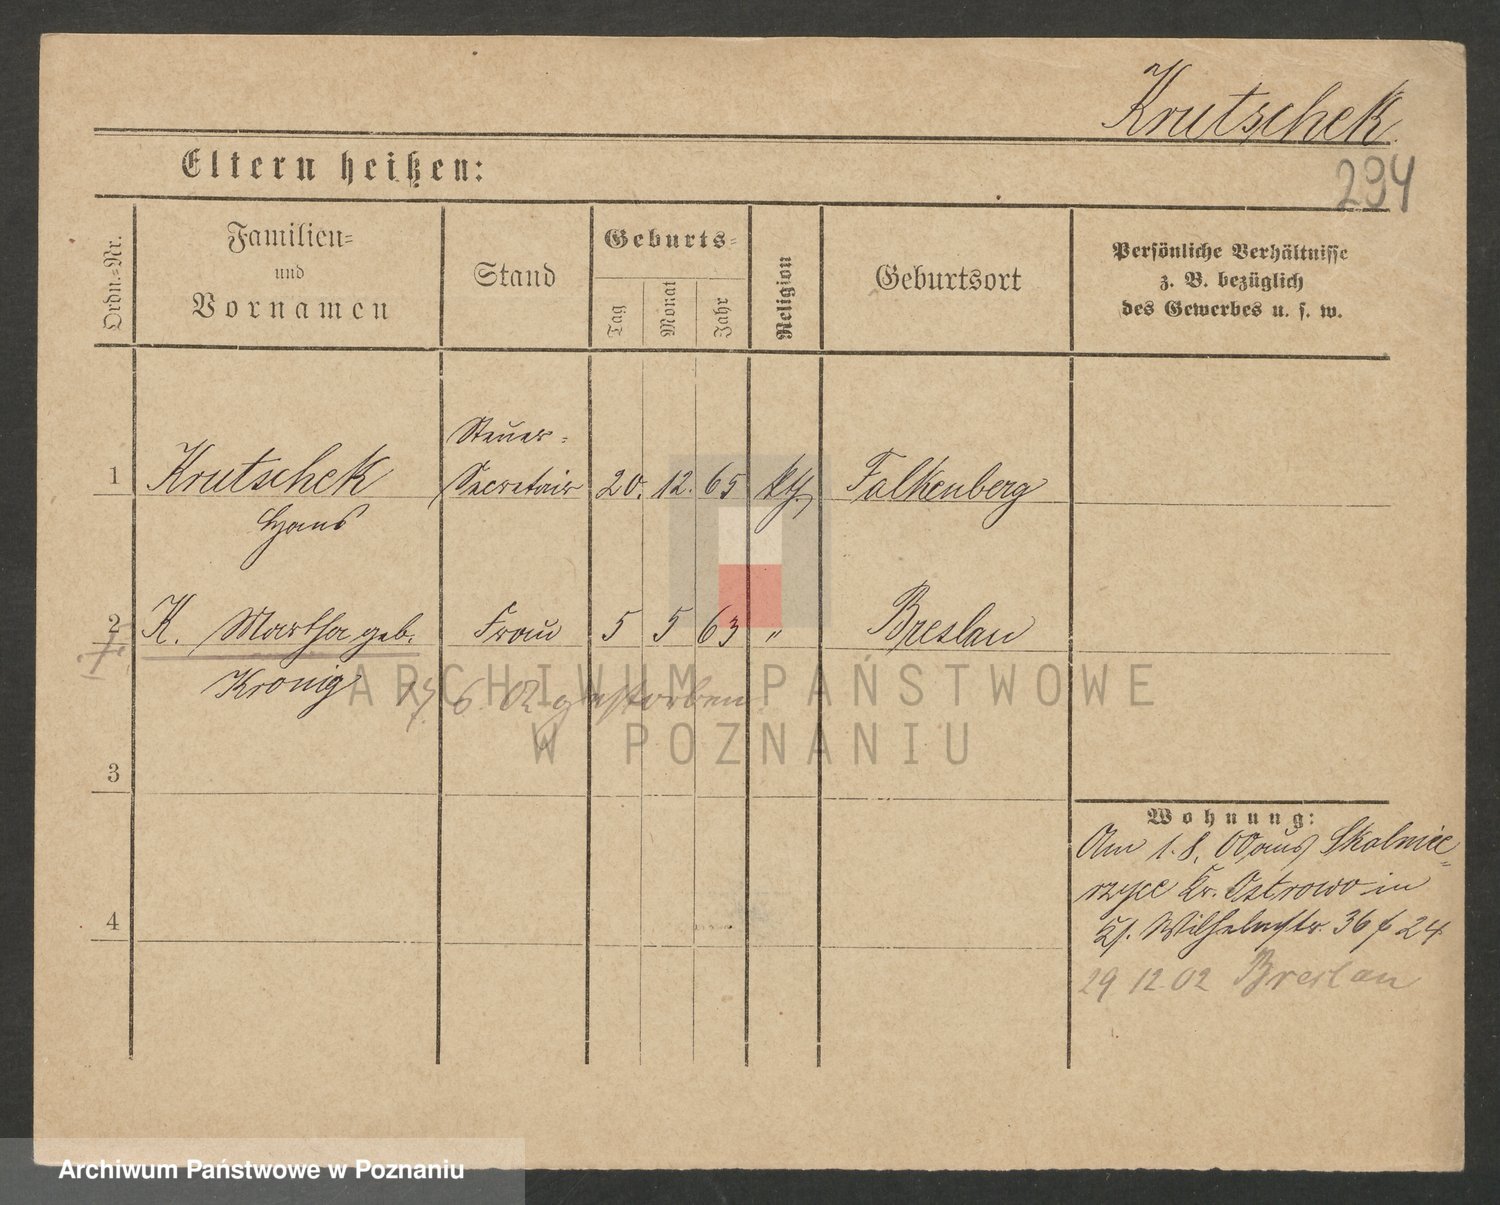 Krutschek
294
Eltern heißen:
Ordn.-Nr.
Familien-
und
Vornamen
Stand
Geburts-
Tag
Monat
Jahr
Religion
Geburtsort
Persönliche Verhältnisse
z. B. bezüglich
des Gewerbes u. s. w.
1 Krutschek Steuer-
Secretair 20. 12. 65 Falkenberg
Hans
2 K. Martha geb. Frau 5 5 63 " Breslau
Kronig
6. 02 gestorben
ARCHIWUM PAŃSTWOWE
W POZNANIU
3
4
Wohnung:
Am 1. 8. 00 aus Skalmie-
rzyce Kr. Ostrowo in
Wilhelmstr. 36 24
29. 12. 02 Breslau
Archiwum Państwowe w Poznaniu